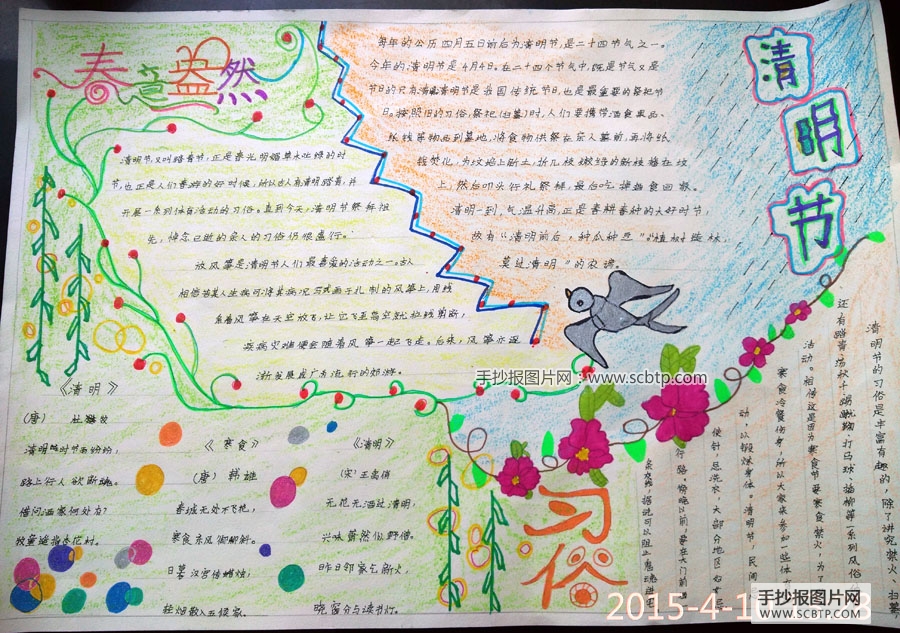 春意盎然
清明节,又叫踏青节,正是春光明媚草木吐绿的时
节,也正是人们春游的好时候,所以古人有清明踏青,并
开展一系列体育活动的习俗。直到今天,清明节祭拜祖
先,悼念已逝的亲人的习俗仍很盛行。
放风筝是清明节人们最喜爱的活动之一。古人
相信
系着风筝在天空放飞,让它飞至高空就把线剪断,
疾病灾难便会随着风筝一起飞走。后来,风筝亦逐
渐发展成广为流行的郊游。
每年的公历四月五日前后为清明节,是二十四节气之一。
今年的清明节是4月4日。在二十四个节气中,既是节气又是
节日的只有清明。清明节是我国传统节日,也是最重要的祭祀节
日。按照旧的习俗,祭祀(扫墓)时,人们要携带酒食果品、
纸钱等物品到墓地,将食物供祭在亲人墓前,再将纸
钱焚化,为坟墓上新土,折几枝嫩绿的新枝插在坟
上,然后叩头行礼祭拜,最后吃掉酒食回家。
清明一到,气温升高,正是春耕春种的大好时节,
故有“清明前后,种瓜种豆”“植树造林,
莫过清明”的农谚。
清明节
《清明》
(唐)
清明时节雨纷纷,
路上行人欲断魂。
借问酒家何处有?
牧童遥指杏花村。
《寒食》
(唐)韩雄
春城无处不飞花,
寒食东风御柳斜。
日暮汉宫传蜡烛,
轻烟散入五侯家。
《清明》
(宋)王禹偁
无花无酒过清明,
兴味萧然似野僧。
昨日邻家乞新火,
晓窗分与读书灯。
习俗
清明节的习俗是丰富有趣的,除了讲究禁火、扫墓,
还有踏青、荡秋千、蹴鞠、打马球、插柳等一系列风俗
活动。相传这是因为寒食节要寒食禁火,为了
寒食冷餐伤身,所以大家来参加一些体
动,以锻炼身体。清明节,民间
使针,忌洗水,大部分地区
行路。傍晚以前,要在大门前
手抄报图片网:www.scbtp.com
2015-4-1
手抄报图片网
WWW.SCBTP.COM